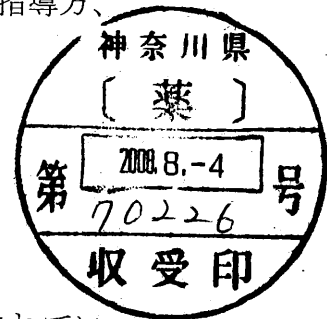 指導方、
神奈川県
〔薬〕
第 2008.8.-4 号
70226
収受印